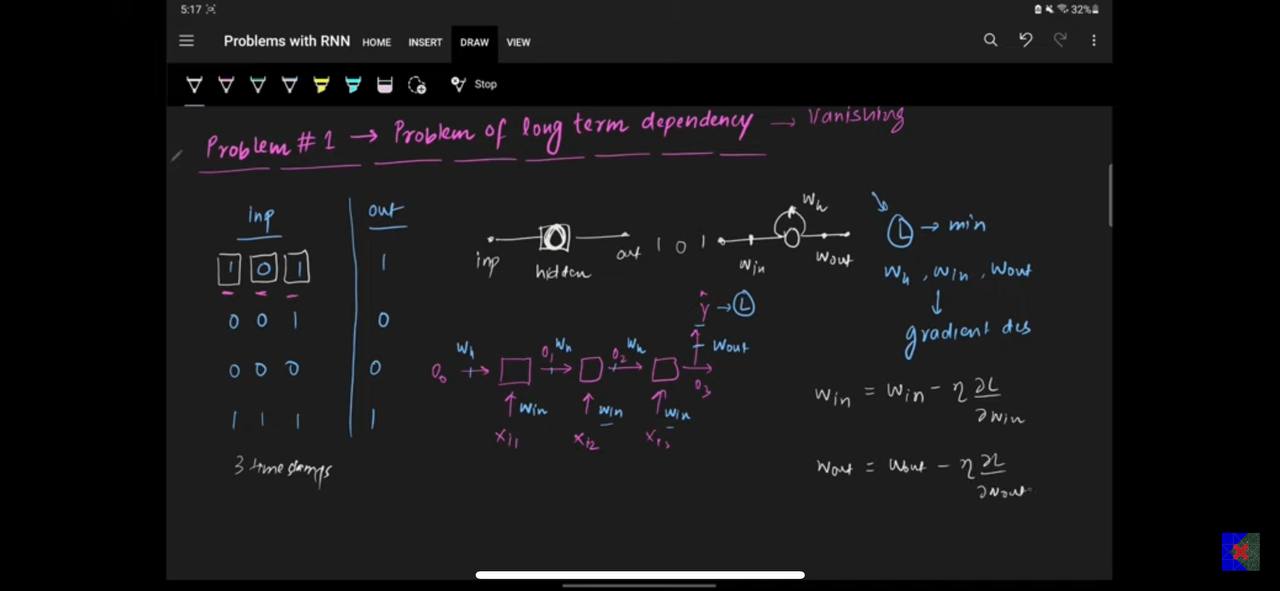 5:17
32%
Problems with RNN HOME INSERT DRAW VIEW
Stop
Problem #1 → Problem of long term dependency → Vanishing
Inp | out
1 0 1 | 1
0 0 1 | 0
0 0 0 | 0
1 1 1 | 1
3 timestamps
inp hidden out
1 0 1 Win Wh Wout
ŷ → L
Wout
O₀ Wh O₁ Wh O₂ Wh O₃
Win Win Win
Xi1 Xi2 Xi3
L → min
Wh, Win, Wout
↓
gradient des
Win = Win - η ∂L/∂Win
Wout = Wout - η ∂L/∂Wout